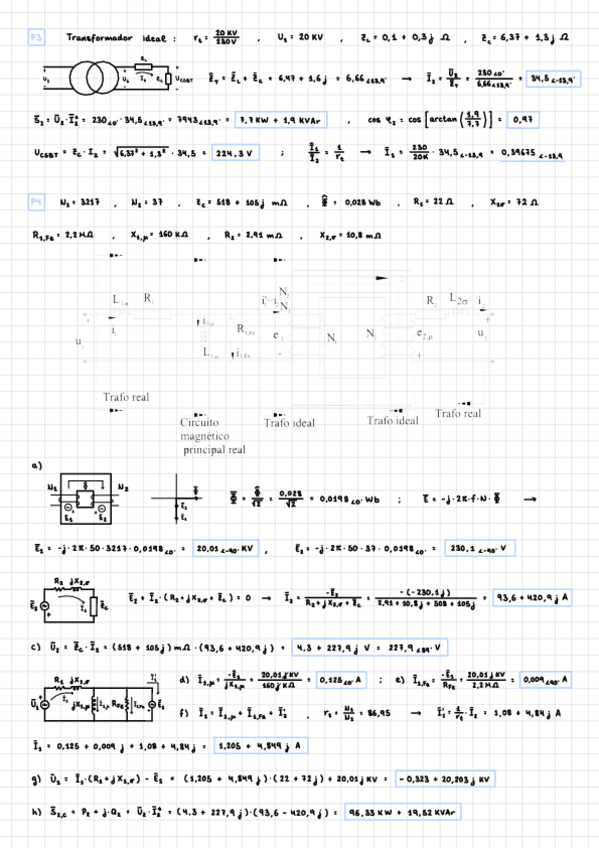 P3 Transformador ideal : rt = 20 KV / 230V , U1 = 20 KV , Z̄L = 0,1 + 0,3j Ω , Z̄c = 6,37 + 1,3j Ω
Z̄T = Z̄L + Z̄c = 6,47 + 1,6j = 6,66∠13,9° → Ī2 = Ū2 / Z̄T = 230∠0° / 6,66∠13,9° = 34,5∠-13,9°
S̄2 = Ū2 · Ī2* = 230∠0° · 34,5∠13,9° = 7943∠13,9° = 7,7 KW + 1,9 KVAr , cos φ2 = cos [arctan (1,9 / 7,7)] = 0,97
UCGBT = Z̄c · I2 = √6,37² + 1,3² · 34,5 = 224,3 V ; Ī1 / Ī2 = 1 / rt → Ī1 = 230 / 20K · 34,5∠-13,9 = 0,39675∠-13,9
P4 N1 = 3217 , N2 = 37 , Z̄c = 518 + 105j mΩ , Φ̂ = 0,028 Wb , R1 = 22 Ω , X1σ = 72 Ω
R1,Fe = 2,2 MΩ , X1,μ = 160 KΩ , R2 = 2,91 mΩ , X2,σ = 10,8 mΩ
L1,σ R1 R2 L2σ i2
R1,Fe e1 N1 N2 e2,μ u2
u1 L1,μ
Trafo real
Circuito magnético principal real
Trafo ideal
Trafo ideal
Trafo real
a)
N1 N2 Ē1 Ē2
Φ̄ = Φ̂ / √2 = 0,028 / √2 = 0,0198∠0° Wb ; Ē = -j·2π·f·N·Φ̄ →
Ē1 = -j·2π·50·3217·0,0198∠0° = 20,01∠-90° KV , Ē2 = -j·2π·50·37·0,0198∠0° = 230,1∠-90° V
R2 jX2,σ
Ē2 + Ī2·(R2 + jX2,σ + Z̄c) = 0 → Ī2 = -Ē2 / R2 + jX2,σ + Z̄c = -(-230,1j) / 2,91 + 10,8j + 508 + 105j = 93,6 + 420,9j A
c) Ū2 = Z̄c · Ī2 = (518 + 105j) mΩ · (93,6 + 420,9j) = 4,3 + 227,9j V = 227,9∠89° V
d) Ī1,μ = -Ē1 / jX1,μ = 20,01j KV / 160j KΩ = 0,125∠0° A ; e) Ī1,Fe = -Ē1 / RFe = 20,01j KV / 2,2 MΩ = 0,009∠90° A
f) Ī1 = Ī1,μ + Ī1,Fe + Ī2' , rt = N1 / N2 = 86,95 → Ī2' = 1 / rt · Ī2 = 1,08 + 4,84j A
Ī1 = 0,125 + 0,009j + 1,08 + 4,84j = 1,205 + 4,849j A
g) Ū1 = Ī1·(R1 + jX1,σ) - Ē1 = (1,205 + 4,849j)·(22 + 72j) + 20,01j KV = -0,323 + 20,203j KV
h) S̄2,c = P2 + j·Q2 = Ū2·Ī2* = (4,3 + 227,9j)·(93,6 - 420,9j) = 96,33 KW + 19,52 KVAr